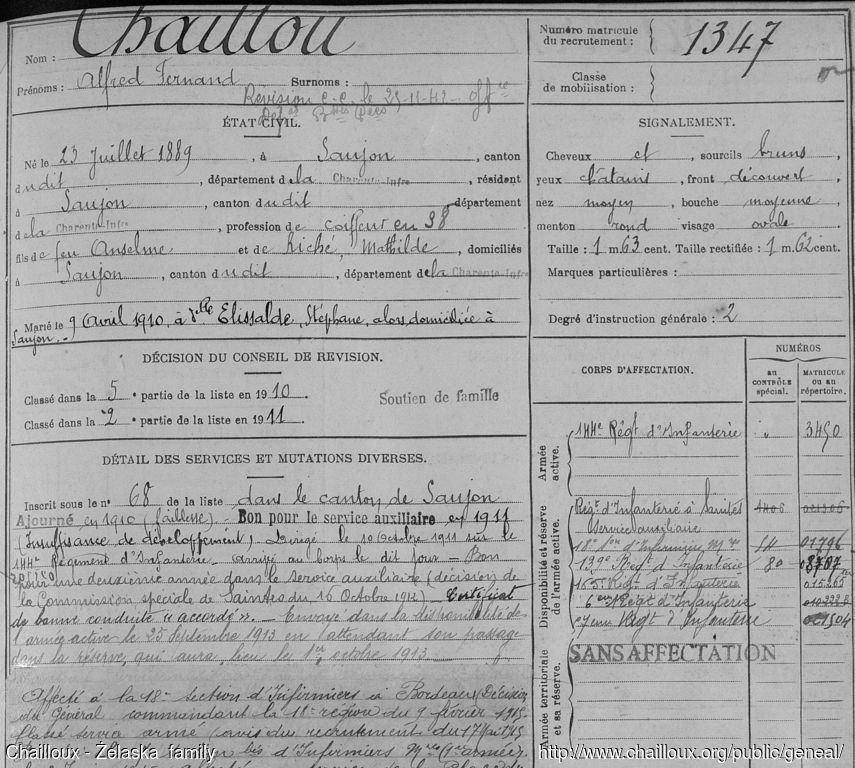 Nom : Chaillou
Prénoms : Alfred Fernand Surnoms :
Révision C.C. le 25-11-42
ÉTAT CIVIL.
Né le 23 Juillet 1889, à Saujon, canton
dudit, département de la Charente-Infre, résident
à Saujon, canton dudit département
de la Charente-Infre, profession de coiffeur en 38
fils de feu Anselme et de Riché, Mathilde, domiciliés
à Saujon, canton dudit, département de la Charente-Infre
Marié le 9 Avril 1910, à Delle Elissalde, Stéphane, alors domiciliée à
Saujon.
DÉCISION DU CONSEIL DE REVISION.
Classé dans la 5e partie de la liste en 1910
Soutien de famille
Classé dans la 2e partie de la liste en 1911
DÉTAIL DES SERVICES ET MUTATIONS DIVERSES.
Inscrit sous le no 68 de la liste dans le canton de Saujon
Ajourné en 1910 (faiblesse). Bon pour le service auxiliaire en 1911
(Insuffisance de développement). Dirigé le 10 Octobre 1911 sur le
144e Régiment d'Infanterie. Arrivé au corps le dit jour - Bon
pour une deuxième année dans le service auxiliaire (décision de
la Commission spéciale de Saintes du 16 Octobre 1912). Certificat
de bonne conduite « accordé ». - Envoyé dans la disponibilité de
l'armée active le 25 Septembre 1913 en attendant son passage
dans la réserve, qui aura lieu le 1er octobre 1913
Affecté à la 18e section d'Infirmiers à Bordeaux (Décision
du Général commandant la 18e région du 9 février 1915
Classé service armé (avis du recrutement du 17 Mai 1915
d'Infirmiers Mres (1e armée)
Numéro matricule
du recrutement : 1347
Classe
de mobilisation :
SIGNALEMENT.
Cheveux et, sourcils bruns
yeux châtains, front découvert
nez moyen, bouche moyenne
menton rond visage ovale
Taille : 1 m 63 cent. Taille rectifiée : 1 m 62 cent.
Marques particulières :
Degré d'instruction générale : 2
CORPS D'AFFECTATION.
NUMÉROS
au CONTRÔLE spécial.
MATRICULE ou au répertoire.
Armée active.
144e Régt d'Infanterie " 3450
Disponibilité et réserve de l'armée active.
Régt d'Infanterie à Saintes
Service auxiliaire
18e Son d'Infirmiers Mres 01796
139e Régt d'Infanterie 80 8787
Régt d'Infanterie
6eme Régt d'Infanterie
Régt d'Infanterie
Armée territoriale et sa réserve.
SANS AFFECTATION
Chailloux - Żelaska family
http://www.chailloux.org/public/geneal/